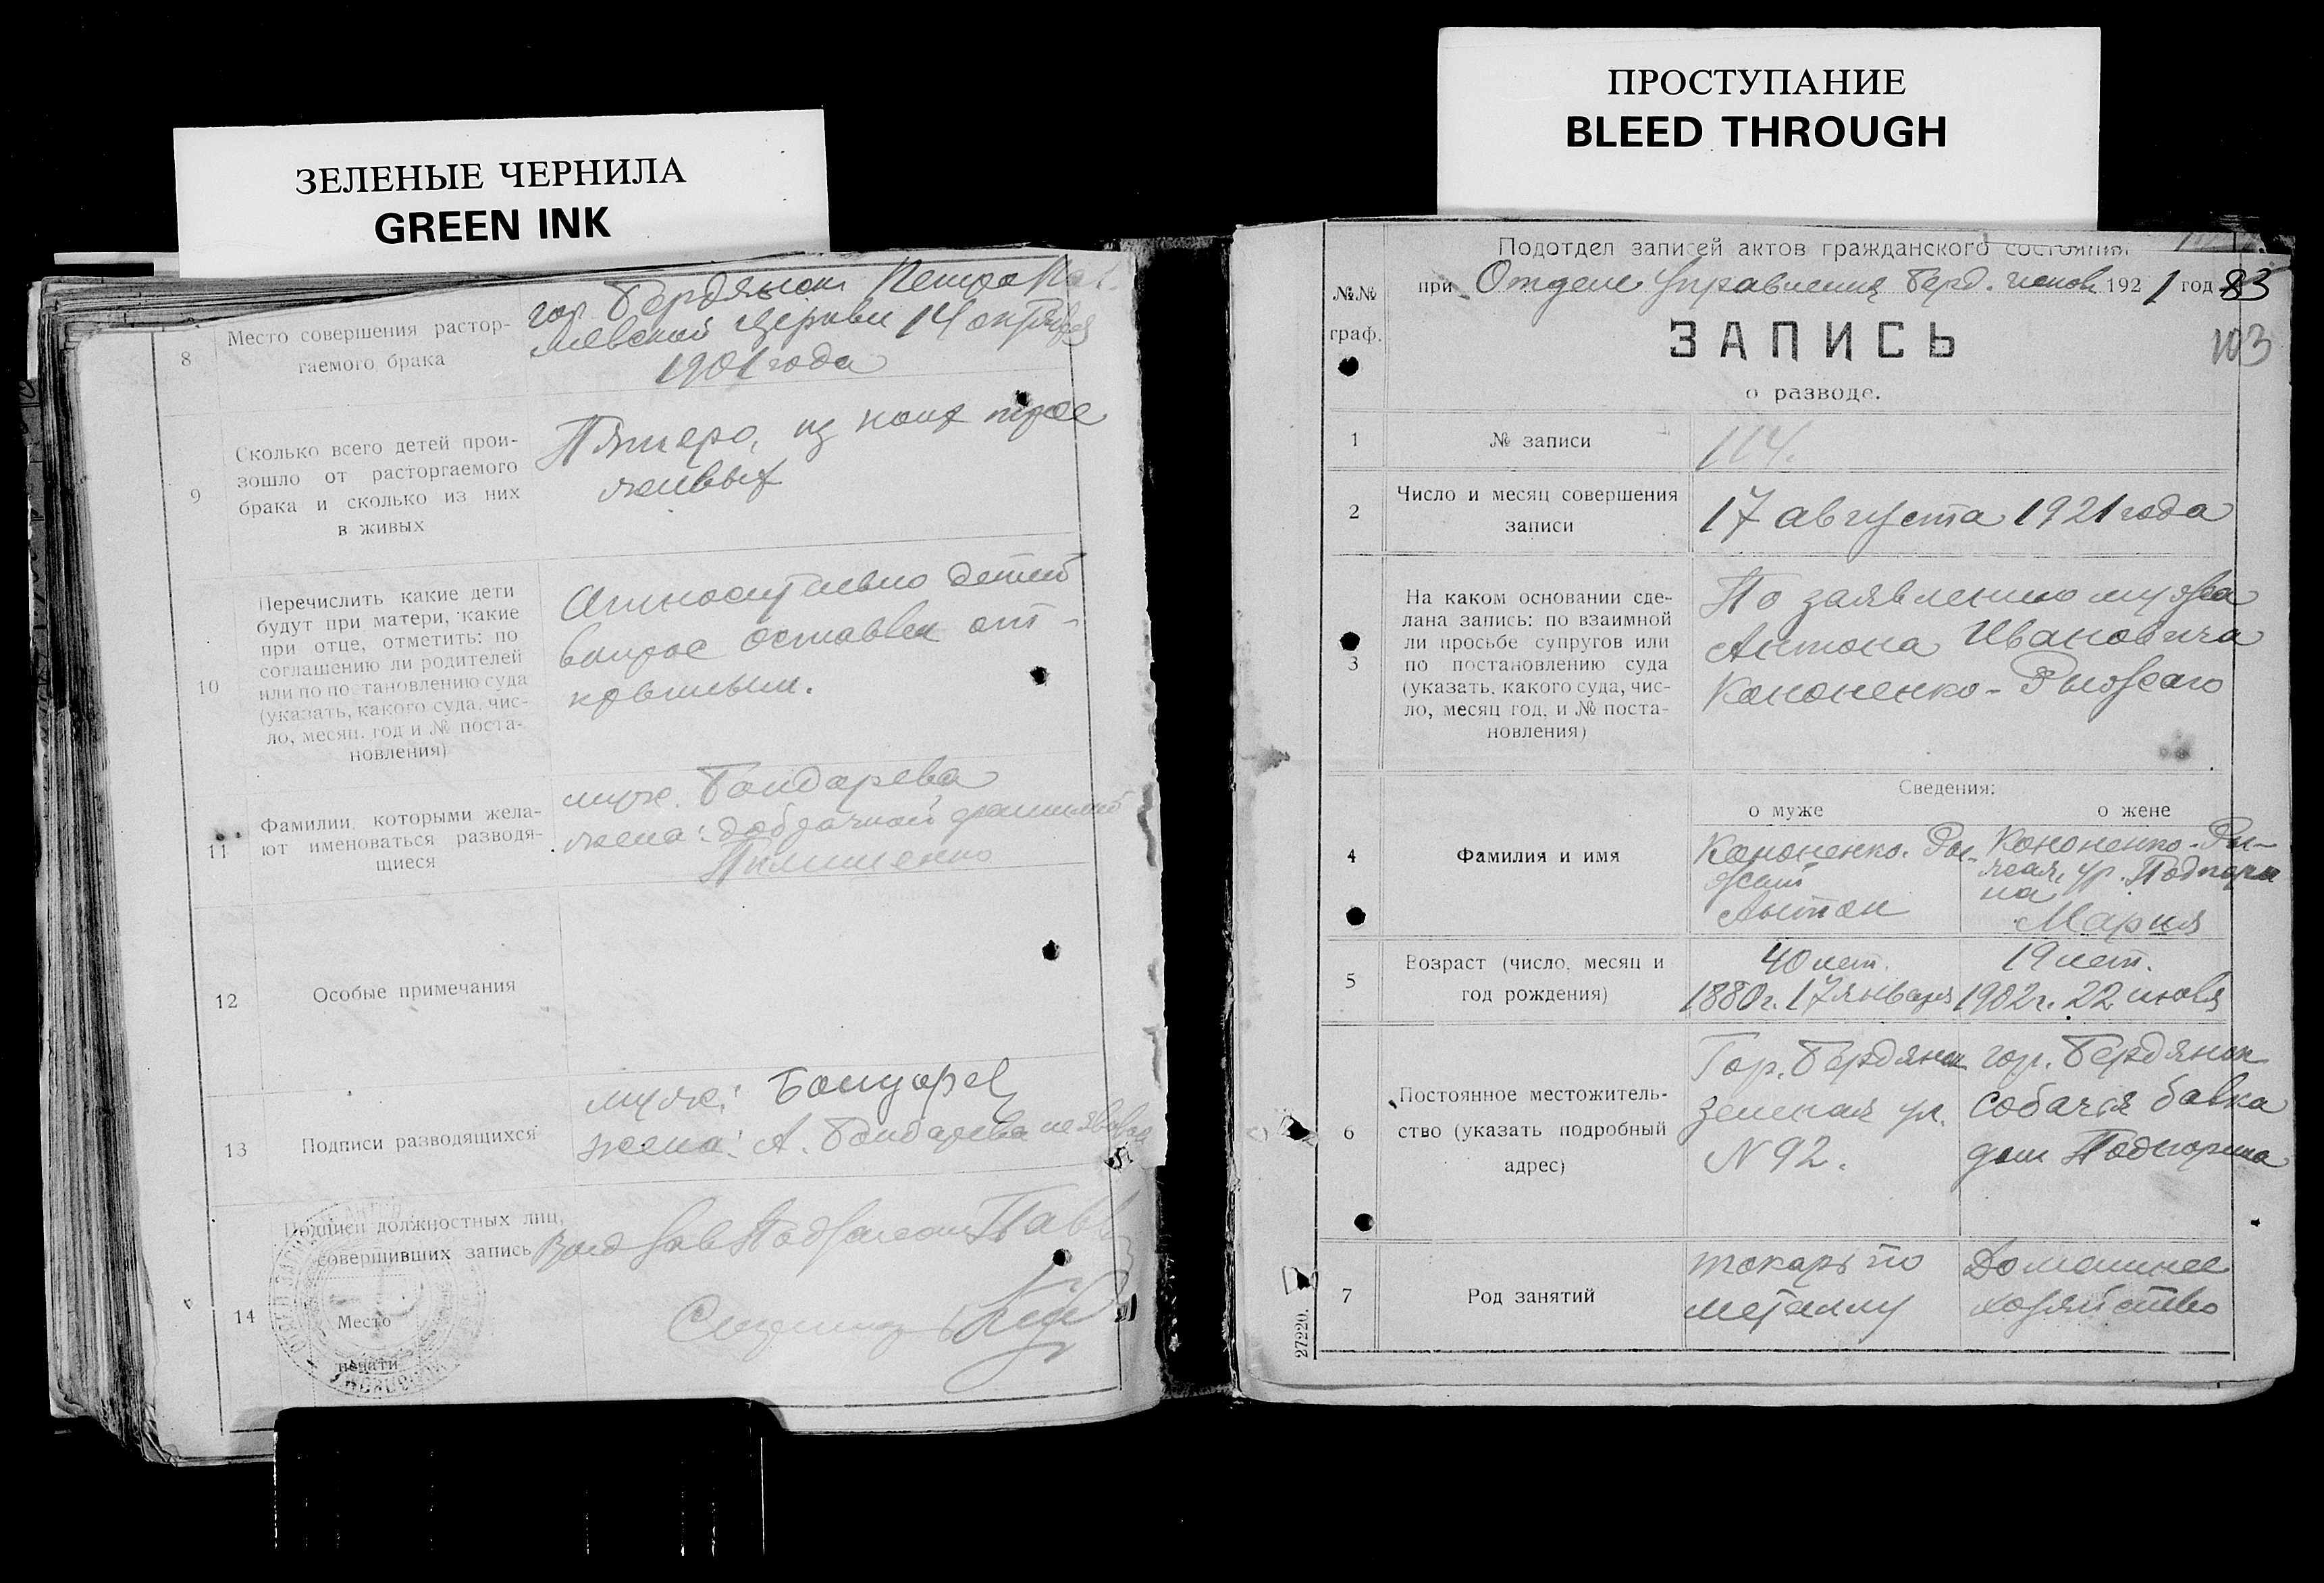 ЗЕЛЕНЫЕ ЧЕРНИЛА
GREEN INK
8
Место совершения растор-
гаемого брака
гор. Бердянск Петро Пав-
ловской церкви 14 октября
1901 года
9
Сколько всего детей прои-
зошло от расторгаемого
брака и сколько из них
в живых
Пятеро, из коих трое
живых
10
Перечислить какие дети
будут при матери, какие
при отце, отметить: по
соглашению ли родителей
или по постановлению суда
(указать, какого суда, чис-
ло, месяц, год и № поста-
новления)
Относительно детей
вопрос оставлен от-
крытым.
11
Фамилии, которыми жела-
ют именоваться разводя-
щиеся
муж. Бондарева
жена: добрачной фамилией
12
Особые примечания
13
Подписи разводящихся
муж: Бондарев
жена: А. Бондарева не явилась
14
Подписи должностных лиц,
совершивших запись
Место
печати
ПРОСТУПАНИЕ
BLEED THROUGH
№№
граф.
Подотдел записей актов гражданского состояния
при Отделе Управления Берд. исполк 1921 год 83
ЗАПИСЬ
103
о разводе.
1
№ записи
114.
2
Число и месяц совершения
записи
17 августа 1921 года
3
На каком основании сде-
лана запись: по взаимной
ли просьбе супругов или
по постановлению суда
(указать, какого суда, чис-
ло, месяц, год, и № поста-
новления)
По заявлению мужа
Антона Ивановича
Кононенко-Рыжаго
Сведения:
о муже
о жене
4
Фамилия и имя
Кононенко-Ры-
жий
Антон
Кононенко-Ры-
жая, ур. Подпори
на
Мария
5
Возраст (число, месяц и
год рождения)
40 лет.
1880 г. 17 января
19 лет.
1902 г. 22 июля
6
Постоянное местожитель-
ство (указать подробный
адрес)
Гор. Бердянск
Земская ул.
N 92.
гор. Бердянск
Собачья балка
дом Подпорина
7
Род занятий
токарь по
металлу
Домашнее
хозяйство
27220.